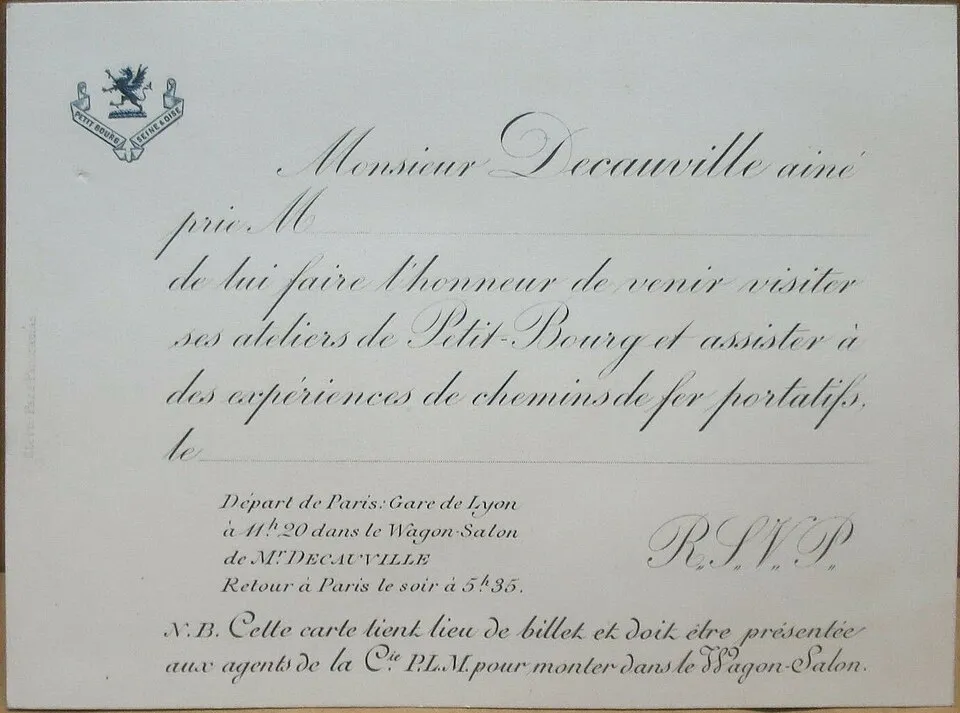 PETIT BOURG SEINE & OISE
Monsieur Decauville ainé
prie M
de lui faire l'honneur de venir visiter
ses ateliers de Petit-Bourg et assister à
des expériences de chemins de fer portatifs.
le
Départ de Paris: Gare de Lyon
à 11ʰ 20 dans le Wagon-Salon
de Mʳ DECAUVILLE
Retour à Paris le soir à 5ʰ 35.
R.,S.,V.,P.,
N.B. Cette carte tient lieu de billet et doit être présentée
aux agents de la Cⁱᵉ P.L.M. pour monter dans le Wagon-Salon.